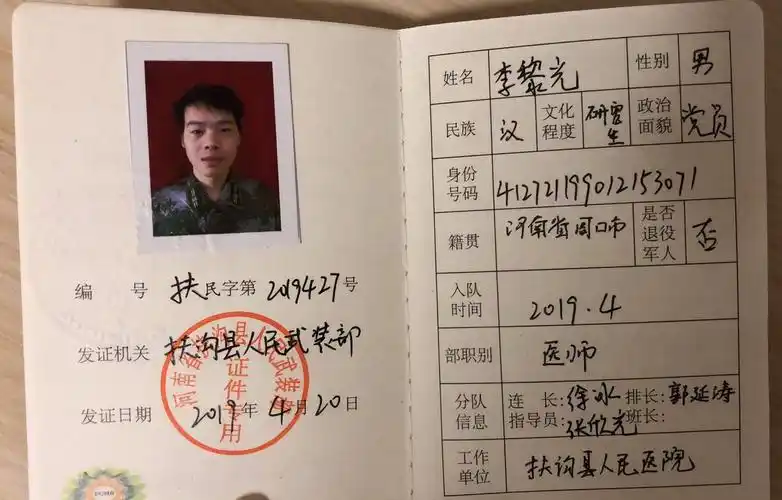 编 号 扶民字第2019427号
发证机关 扶沟县人民武装部
发证日期 2019年4月20日
河南省扶沟县人民武装部
证件专用
姓名 李黎光 性别 男
民族 汉 文化程度 研究生 政治面貌 党员
身份号码 412721199012153071
籍贯 河南省周口市 是否退役军人 否
入队时间 2019.4
部职别 医师
分队信息 连 长:徐冰 排长:郭延涛
指导员:张欣光 班长:
工作单位 扶沟县人民医院